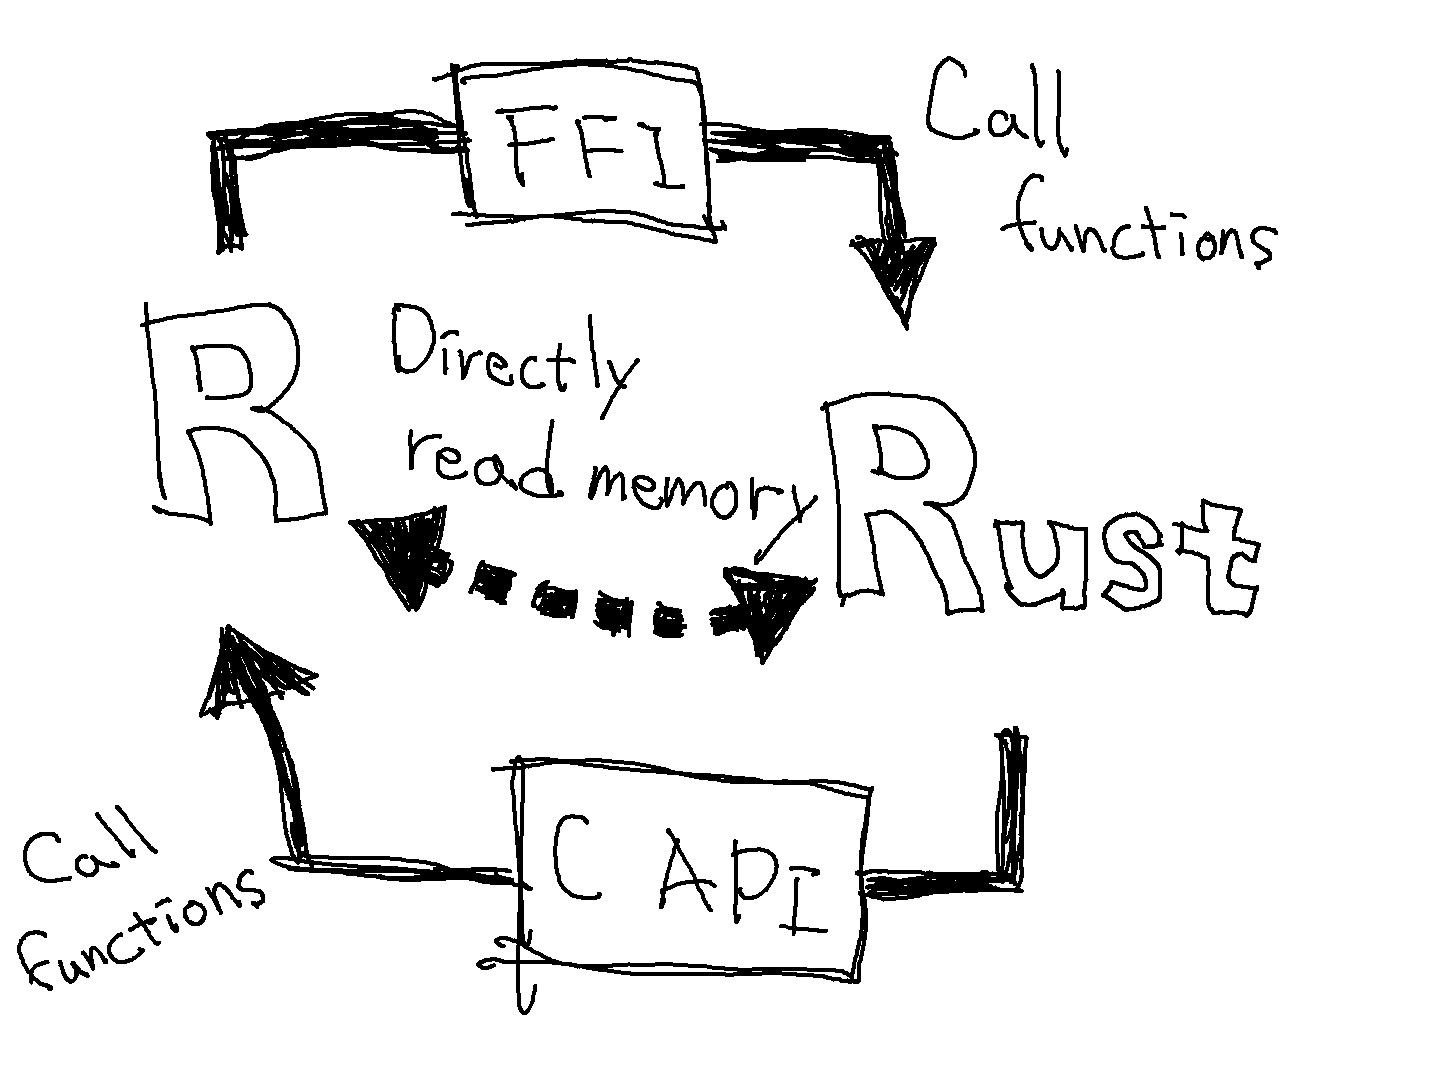 FFI
Call
functions
R
Directly
read memory
Rust
C API
Call
functions